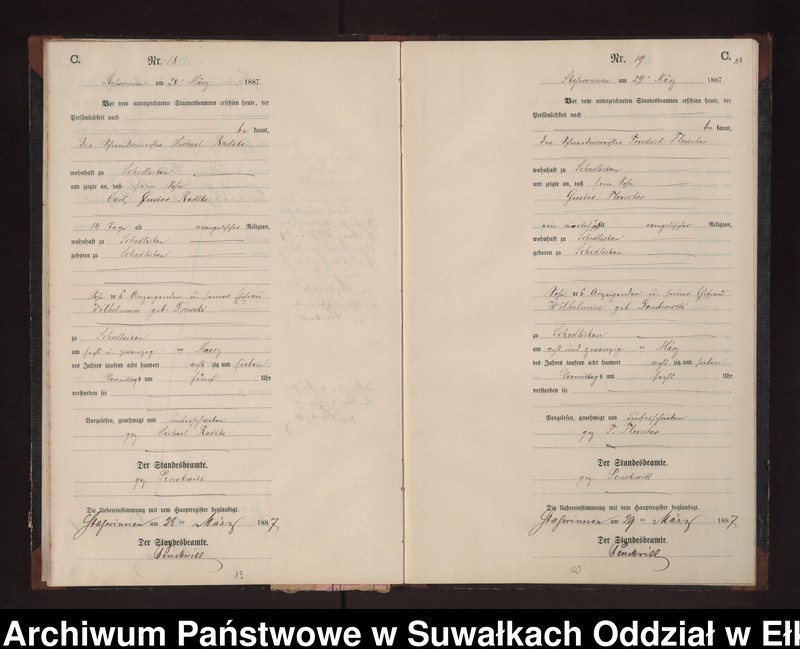 C.
Nr. 18
am 28. März 1887.
Vor dem unterzeichneten Standesbeamten erschien heute, der
Persönlichkeit nach
be kannt,
der Michael Radtke
wohnhaft zu Schedlisken
und zeigte an, daß sein Sohn
Carl Gustav Radtke
14 Tage alt evangelischer Religion,
wohnhaft zu Schedlisken
geboren zu Schedlisken
Sohn des Anzeigenden u. seiner Ehefrau
Wilhelmine geb.
zu Schedlisken
am sechs u. zwanzig ten Maerz
des Jahres tausend acht hundert acht zig und sieben
Vormittags um fünf Uhr
verstorben sei
Vorgelesen, genehmigt und unterschrieben
gez Michael Radtke
Der Standesbeamte.
gez
Die Uebereinstimmung mit dem Hauptregister beglaubigt.
am 28 ten März 1887.
Der Standesbeamte.
19
C. 11
Nr. 19
am 29. März 1887
Vor dem unterzeichneten Standesbeamten erschien heute, der
Persönlichkeit nach
be kannt,
der Schneidermeister Friedrich
wohnhaft zu Schedlisken
und zeigte an, daß sein Sohn
Gustav
ein alt evangelischer Religion,
wohnhaft zu Schedlisken
geboren zu Schedlisken
Sohn des Anzeigenden u. seiner Ehefrau
Wilhelmine geb. Dombrowski
zu Schedlisken
am acht und zwanzig ten März
des Jahres tausend acht hundert acht zig und sieben
Vormittags um sechs Uhr
verstorben sei
Vorgelesen, genehmigt und unterschrieben
gez F.
Der Standesbeamte.
gez
Die Uebereinstimmung mit dem Hauptregister beglaubigt.
am 29 ten März 1887.
Der Standesbeamte.
20
Archiwum Państwowe w Suwałkach Oddział w Ełk